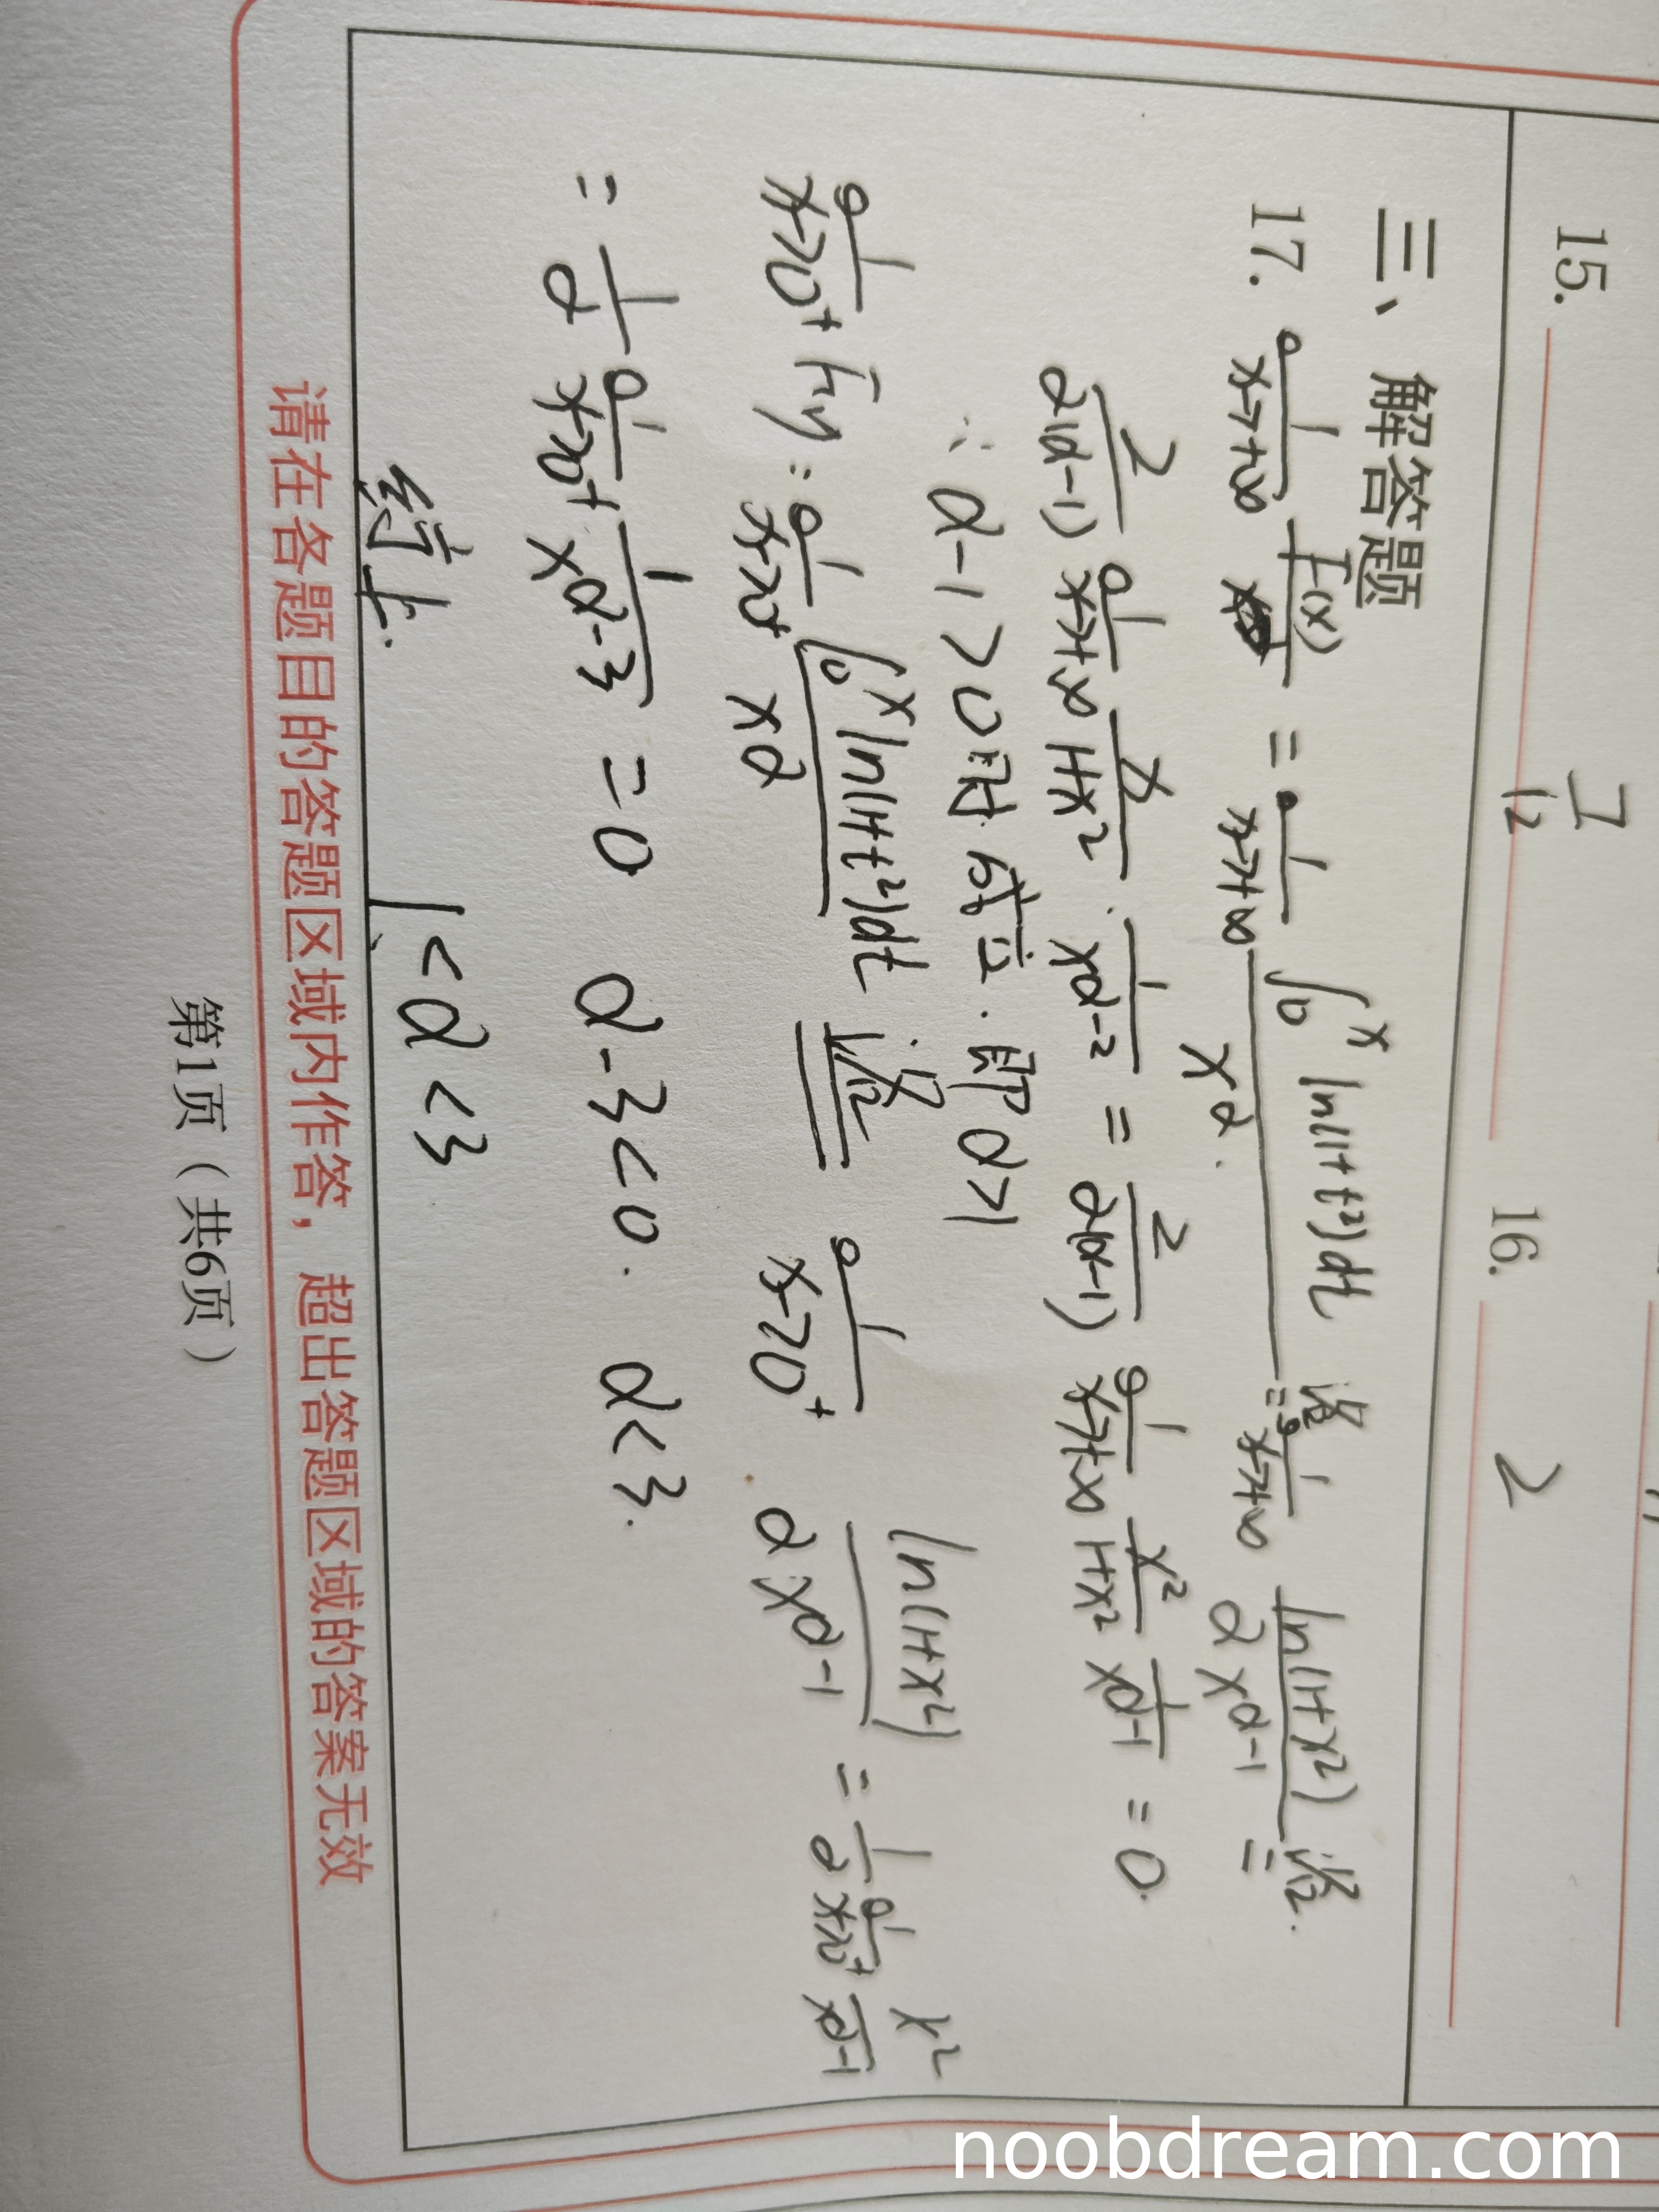 15. 7/12 16. 2
三、解答题
17. lim x→+∞ F(x)/x = lim x→+∞ ∫₀ˣ ln(1+t²)dt / x^α 洛 = lim x→+∞ ln(1+x²) / αx^(α-1) 洛 =
2/α(α-1) lim x→+∞ x/1+x² · 1/x^(α-2) = 2/α(α-1) lim x→+∞ x²/1+x² 1/x^(α-1) = 0.
∴ α-1>0时 成立. 即α>1
lim x→0⁺ F(x) = lim x→0⁺ ∫₀ˣ ln(1+t²)dt / x^α 洛 = lim x→0⁺ ln(1+x²) / αx^(α-1) = 1/α lim x→0⁺ x²/x^(α-1)
= 1/α lim x→0⁺ 1/x^(α-3) = 0 α-3<0. α<3.
综上. 1<α<3
请在各题目的答题区域内作答，超出答题区域的答案无效
第1页（共6页）
noobdream.com